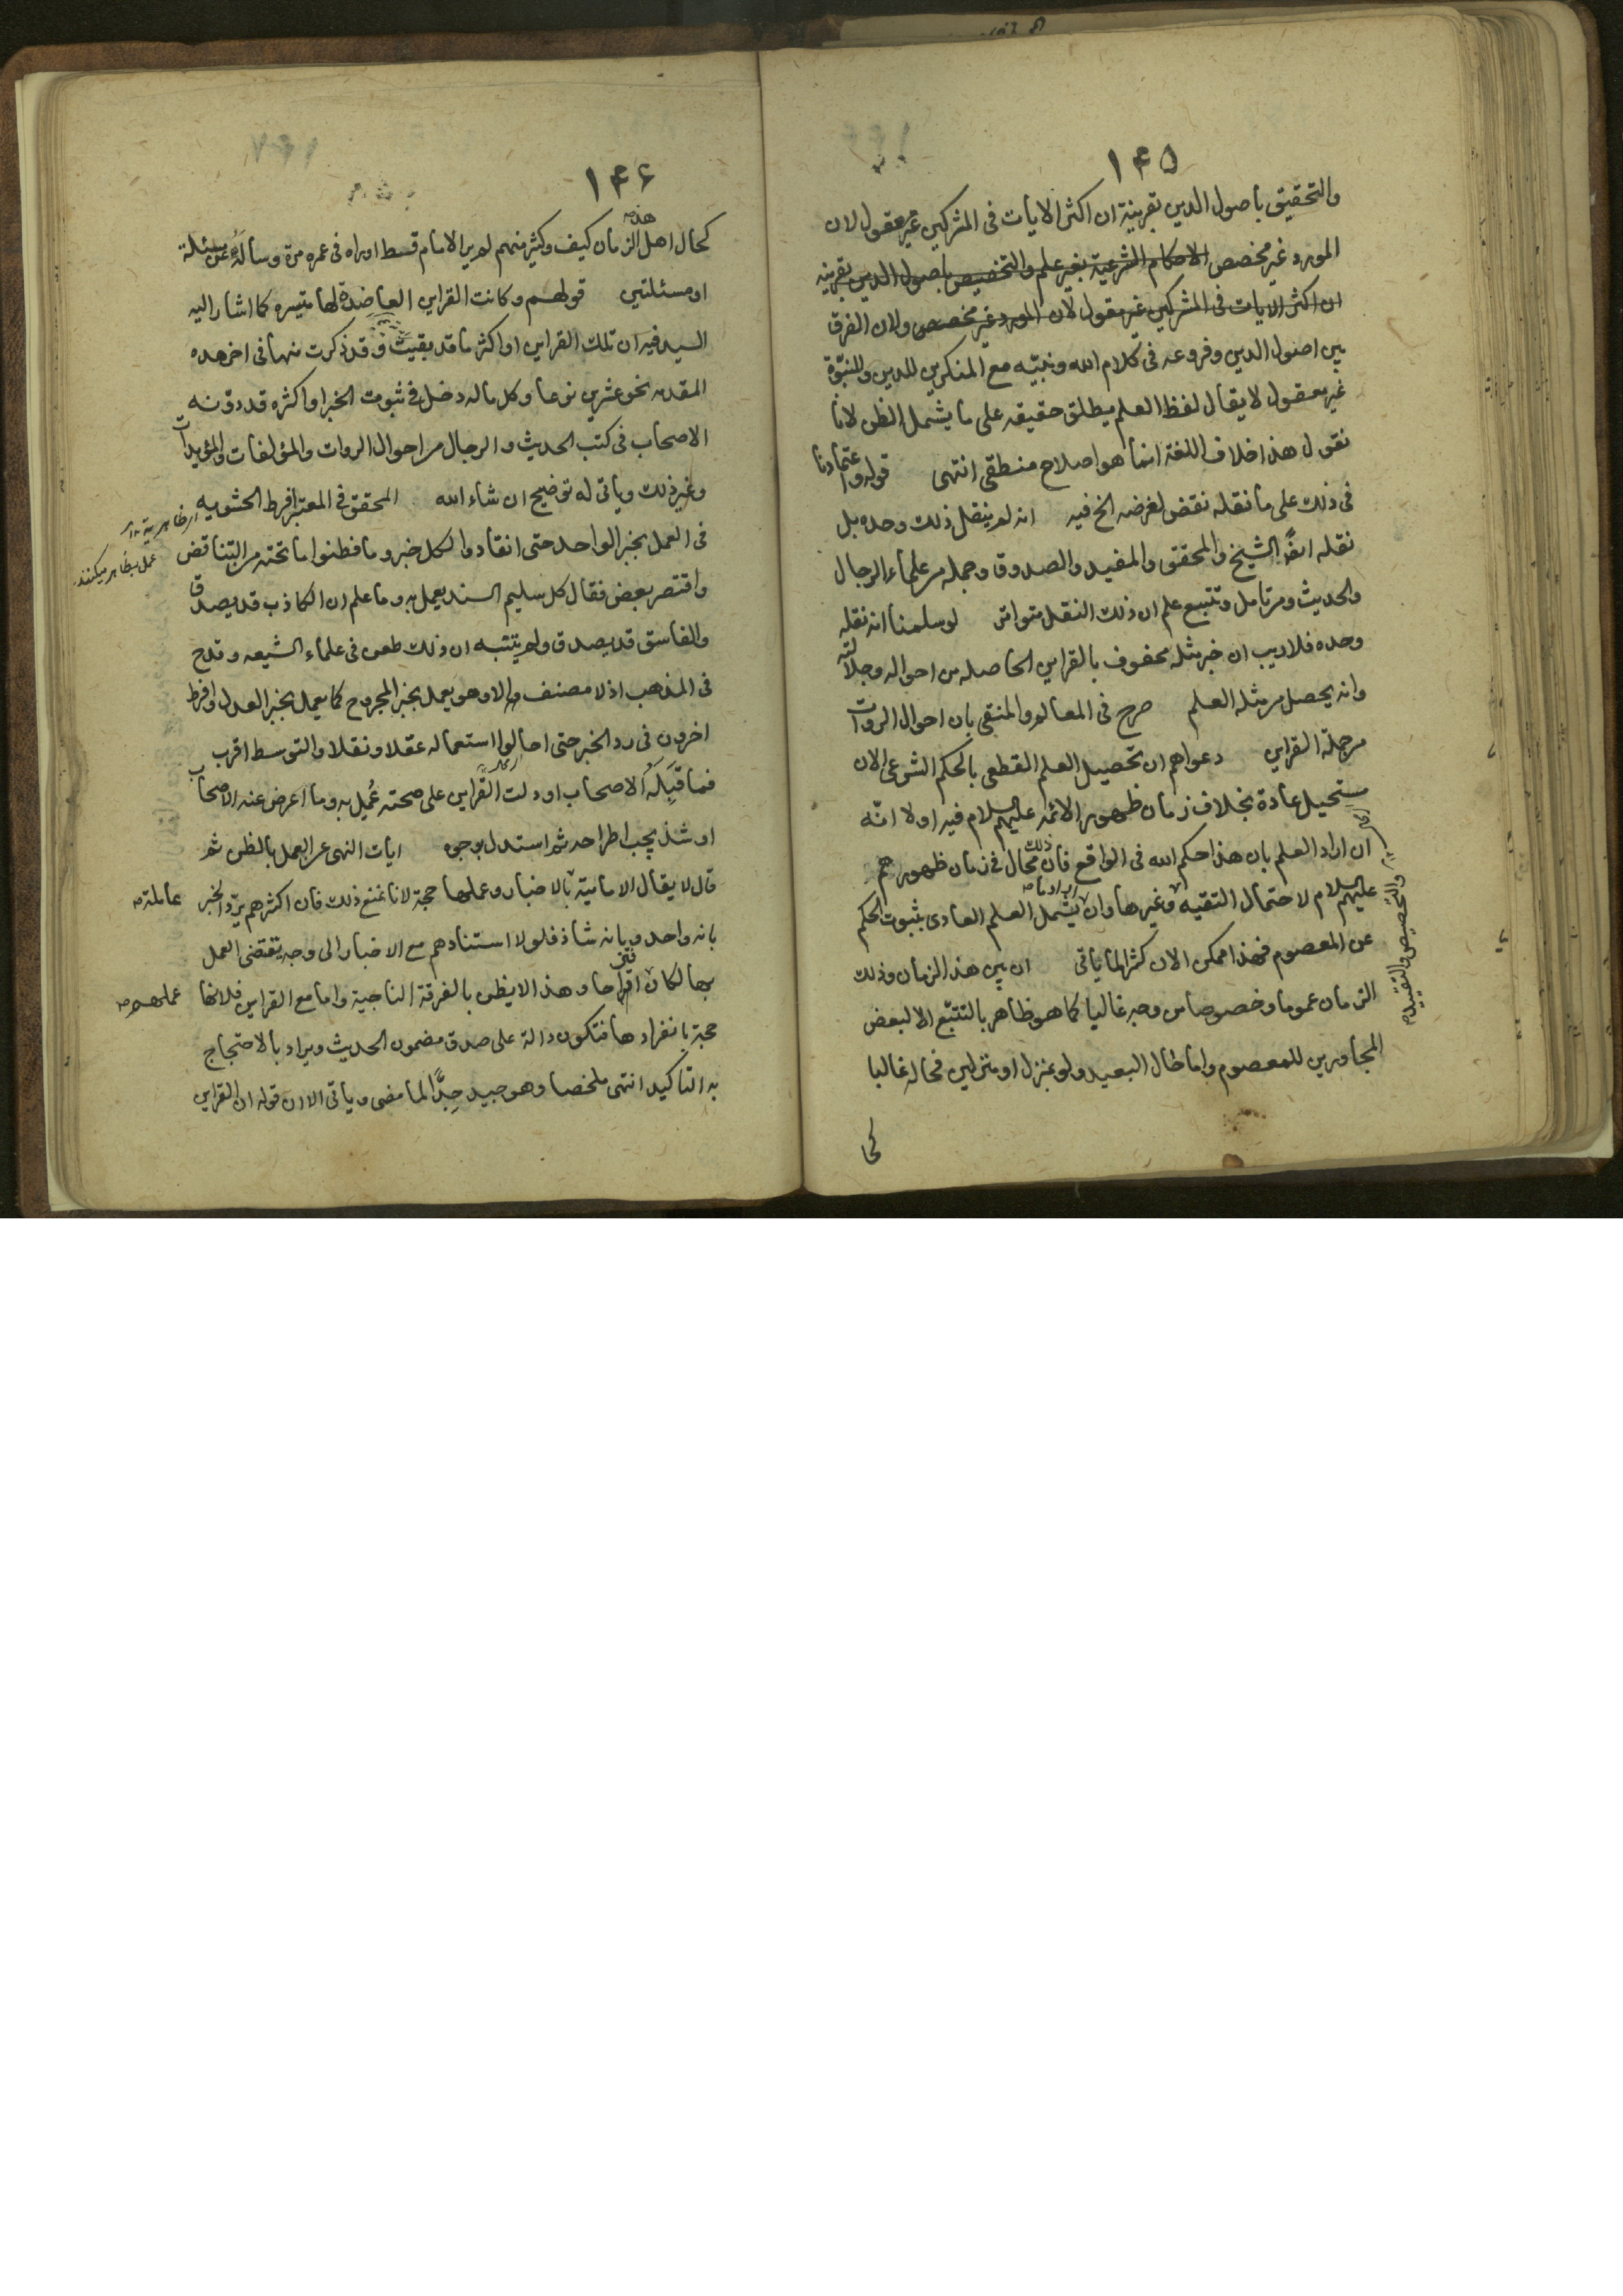 ۱۴۵
والتحقيق باصول الدين بقرينة ان اكثر الايات فى المشركين غير معقول لان
المورد غير مخصص الاحكام الشرعية بغير علم والتخصيص باصول الدين بقرينه
ان اكثر الايات فى المشركين غير معقول لان المورد غير مخصص ولان الفرق
بين اصول الدين وفروعه فى كلام الله ونبيّه مع المنكرين للدين وللنبّوة
غير معقول لا يقال لفظ العلم يطلق حقيقه على ما يشمل الظن لانا
نقول هذا خلاف اللغة انما هو اصلاح منطقى انتهى قوله واعتمادنا
فى ذلك على ما نقله نقض لغرضه الخ فيه انه لم ينقل ذلك وحده بل
نقله ايضًا الشيخ والمحقق والمفيد والصدوق وجمله من علماء الرجال
والحديث ومن تامل وتتبع علم ان ذلك النقل متواتر لو سلمنا انه نقله
وحده فلا ريب ان خبر مثله محفوف بالقراين الحاصله من احواله وجلالته
وانه يحصل من مثله العلم صرح فى المعالم والمنتقى بان احوال الروات
من جملة القراين دعواهم ان تحصيل العلم القطعى بالحكم الشرعى الان
مستحيل عادة بخلاف زمان ظهور الائمه عليهم السلام فيه اولا انّه
ان اراد العلم بان هذا حكم الله فى الواقع فان ذلك محال فى زمان ظهورهم
عليهم السلام لاحتمال التقيه وغيرها وان اراد ما يشمل العلم العادى بثبوت الحكم
والتخصيص والتقييد
عن المعصوم فهذا ممكن الان كثر لما ياتى ان بين هذا الزمان وذلك
الزمان عموما وخصوصا من وجه غاليا كما هو ظاهر بالتتبّع الا لبعض
المجاورين للمعصوم واما حال البعيد ولو بمنزل او منزلين فحاله غالبا
كحا
۱۴۶
كحال اهل هذه الزمان كيف وكثير منهم لم ير الامام قسط او راه فى عمره مرة وساله عن مسئلة
او مسئلتين قولهم وكانت القراين العاضدة لها متيسره كما اشار اليه
السيد فيه ان تلك القراين او اكثرها قد بقيت وقد ذكرت منها فى اخر هده
المقدمه نحو عشرين نوعا وكل ما له دخل فى ثبوت الخبر او اكثره قد دوّنه
الاصحاب فى كتب الحديث والرجال من احوال الروات والمؤلفات والمؤيدات
وغير ذلك وياتى له توضيح ان شاء الله المحقق فى المعتبر افرط الحشويه
عمل بظاهر ميكنند
فى العمل بخبر الواحد حتى انقادوا لكل خبر وما فطنوا ما تحته من التناقض
واقتصر بعض فقال كل سليم السند يعمل به وما علم ان الكاذب قد يصدق
والفاسق قد يصدق ولم يتنبه ان ذلك طعن فى علماء الشيعه وقدح
فى المذهب اذ لا مصنف الا وهو يعمل بخبر المجروح كما يعمل بخبر العدل وافرط
اخرون فى رد الخبر حتى احالوا استعماله عقلا ونقلا والتوسط اقرب
فما قبله الاصحاب او دلت القراين على صحته عُمل به وما اعرض عنه الاصحاب
او شذ يجب اطراحه ثم استدل بوجوه ايات النهى عن العمل بالظن ثم
قال لا يقال الامامية عاملة بالاخبار وعملها حجة لانا نمنع ذلك فان اكثرهم يردّ الخبر
بانه واحد وبانه شاذ فلولا استنادهم مع الاخبار الى وجه يقتضى العمل
بها لكان عملهم اقتراحا وهذا لا يظن بالفرقة الناجية واما مع القراين فلانها
حجة بانفرادها فتكون دالة على صدق مضمون الحديث ويراد بالاحتجاج
به التاكيد انتهى ملخصا وهو جيد جِدًّا لما مضى وياتى الا ان قوله ان القراين